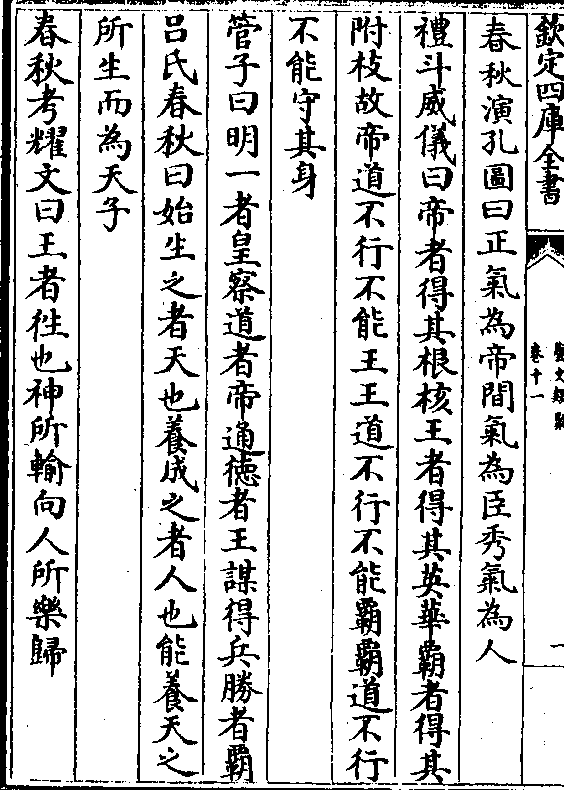 欽定四庫全書
藝文類聚
卷十一
一
春秋演孔圖曰正氣為帝間氣為臣秀氣為人
禮斗威儀曰帝者得其根核王者得其英華霸者得其
附枝故帝道不行不能王王道不行不能霸霸道不行
不能守其身
管子曰明一者皇察道者帝通德者王謀得兵勝者霸
呂氏春秋曰始生之者天也養成之者人也能養天之
所生而為天子
春秋考耀文曰王者徃也神所輸向人所樂歸